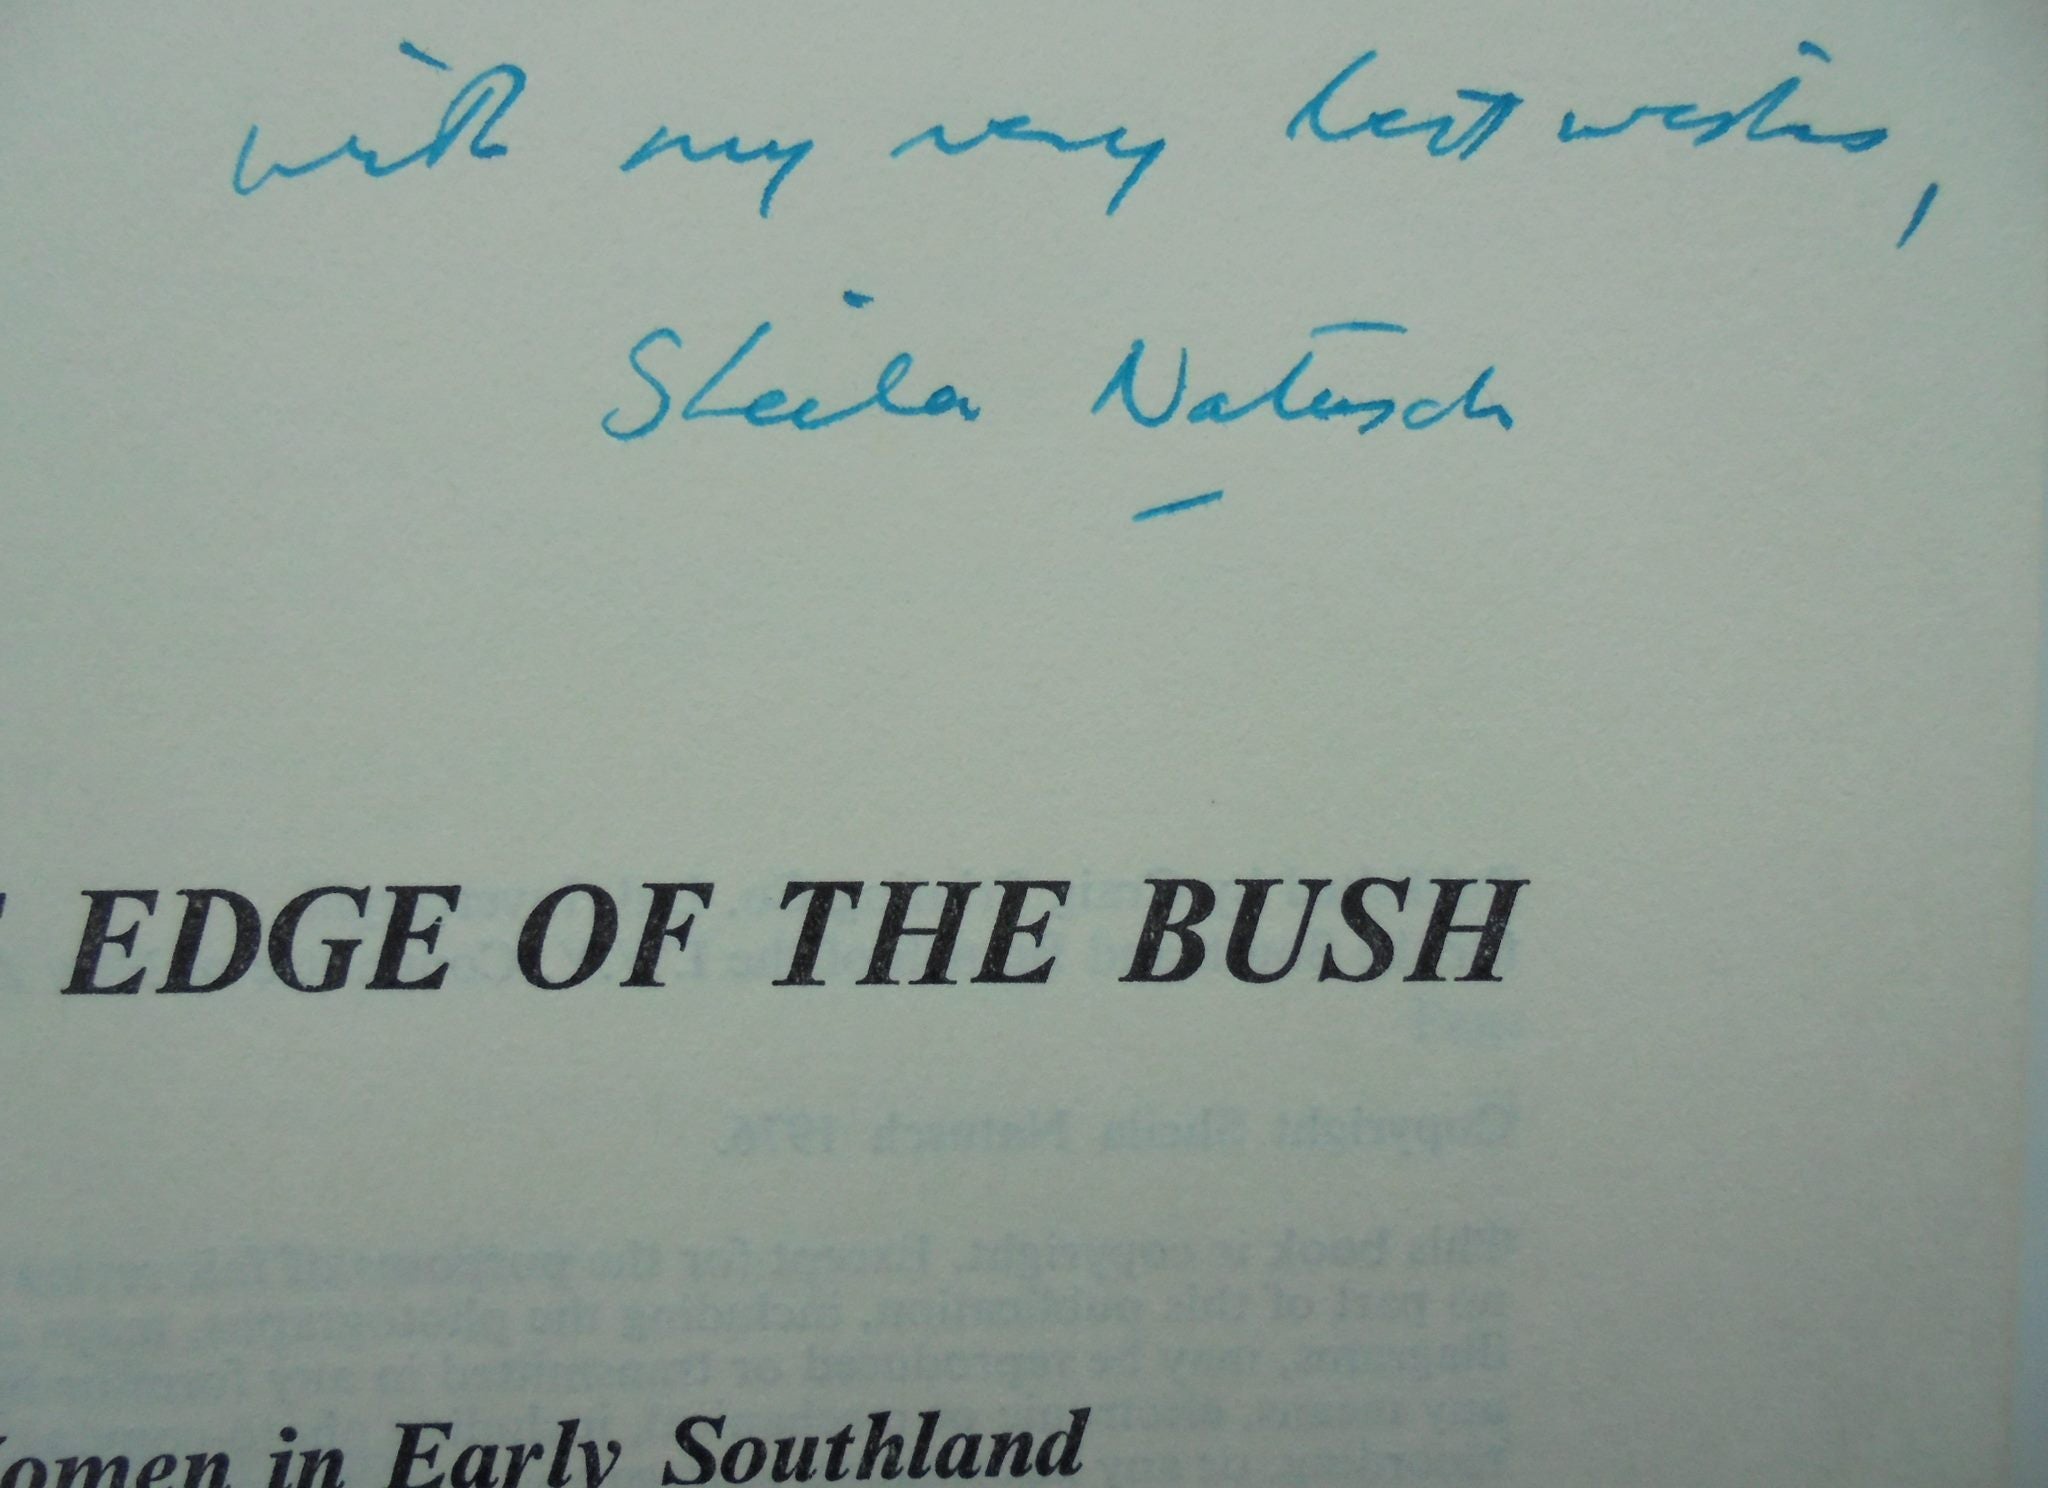 with my very best wishes,
Sheila Natusch
EDGE OF THE BUSH
Copyright Sheila Natusch 1976.
This book is copyright. Except for the purposes of
part of this publication, including the photographs,
diagrams, may be reproduced or transmitted in any form
in Early Southland